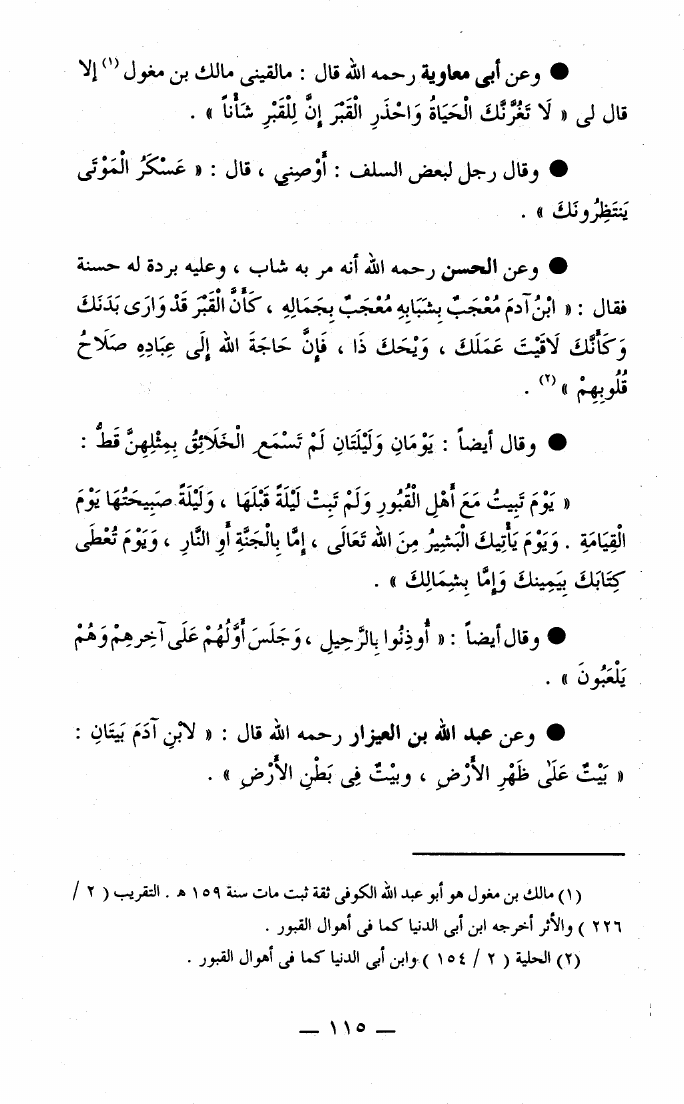 ● وعن أبى معاوية رحمه الله قال : مالقينى مالك بن مغول (١) إلا
قال لى « لَا تَغُرَّنَّكَ الْحَيَاةُ وَاحْذَرِ الْقَبْرَ إِنَّ لِلْقَبْرِ شَأْناً » .
● وقال رجل لبعض السلف : أَوْصِنِي ، قال : « عَسْكَرُ الْمَوْتَى
يَنتَظِرُونَكَ » .
● وعن الحسن رحمه الله أنه مر به شاب ، وعليه بردة له حسنة
فقال : « ابْنُ آدمَ مُعْجَبٌ بِشَبَابِهِ مُعْجَبٌ بِجَمَالِهِ ، كَأَنَّ الْقَبْرَ قَدْ وَارَى بَدَنَكَ
وَكَأَنَّكَ لَاقَيْتَ عَمَلَكَ ، وَيْحَكَ ذَا ، فَإِنَّ حَاجَةَ الله إِلَى عِبَادِهِ صَلَاحُ
قُلُوبِهِمْ » (٢) .
● وقال أيضاً : يَوْمَانِ وَلَيْلَتَانِ لَمْ تَسْمَعِ الْخَلَائِقُ بِمِثْلِهِنَّ قَطُّ :
« يَوْمَ تَبِيتُ مَعَ أَهْلِ الْقُبُورِ وَلَمْ تَبِتْ لَيْلَةً قَبْلَهَا ، وَلَيْلَةً صَبِيحَتُهَا يَوْمَ
الْقِيَامَةِ . وَيَوْمَ يَأْتِيكَ الْبَشِيرُ مِنَ الله تَعَالَى ، إِمَّا بِالْجَنَّةِ أَوِ النَّارِ ، وَيَوْمَ تُعْطَى
كِتَابَكَ بِيَمِينِكَ وَإِمَّا بِشِمَالِكَ » .
● وقال أيضاً : « أُوذِنُوا بِالرَّحِيلِ ، وَجَلَسَ أَوَّلُهُمْ عَلَى آخِرِهِمْ وَهُمْ
يَلْعَبُونَ » .
● وعن عبد الله بن العيزار رحمه الله قال : « لابْنِ آدَمَ بَيتَانِ :
« بَيْتٌ عَلَى ظَهْرِ الأَرْضِ ، وبيْتٌ فِى بَطْنِ الأَرْضِ » .
(١) مالك بن مغول هو أبو عبد الله الكوفى ثقة ثبت مات سنة ١٥٩ هـ . التقريب ( ٢ /
٢٢٦ ) والأثر أخرجه ابن أبى الدنيا كما فى أهوال القبور .
(٢) الحلية ( ٢ / ١٥٤ ) وابن أبى الدنيا كما فى أهوال القبور .
— ١١٥ —